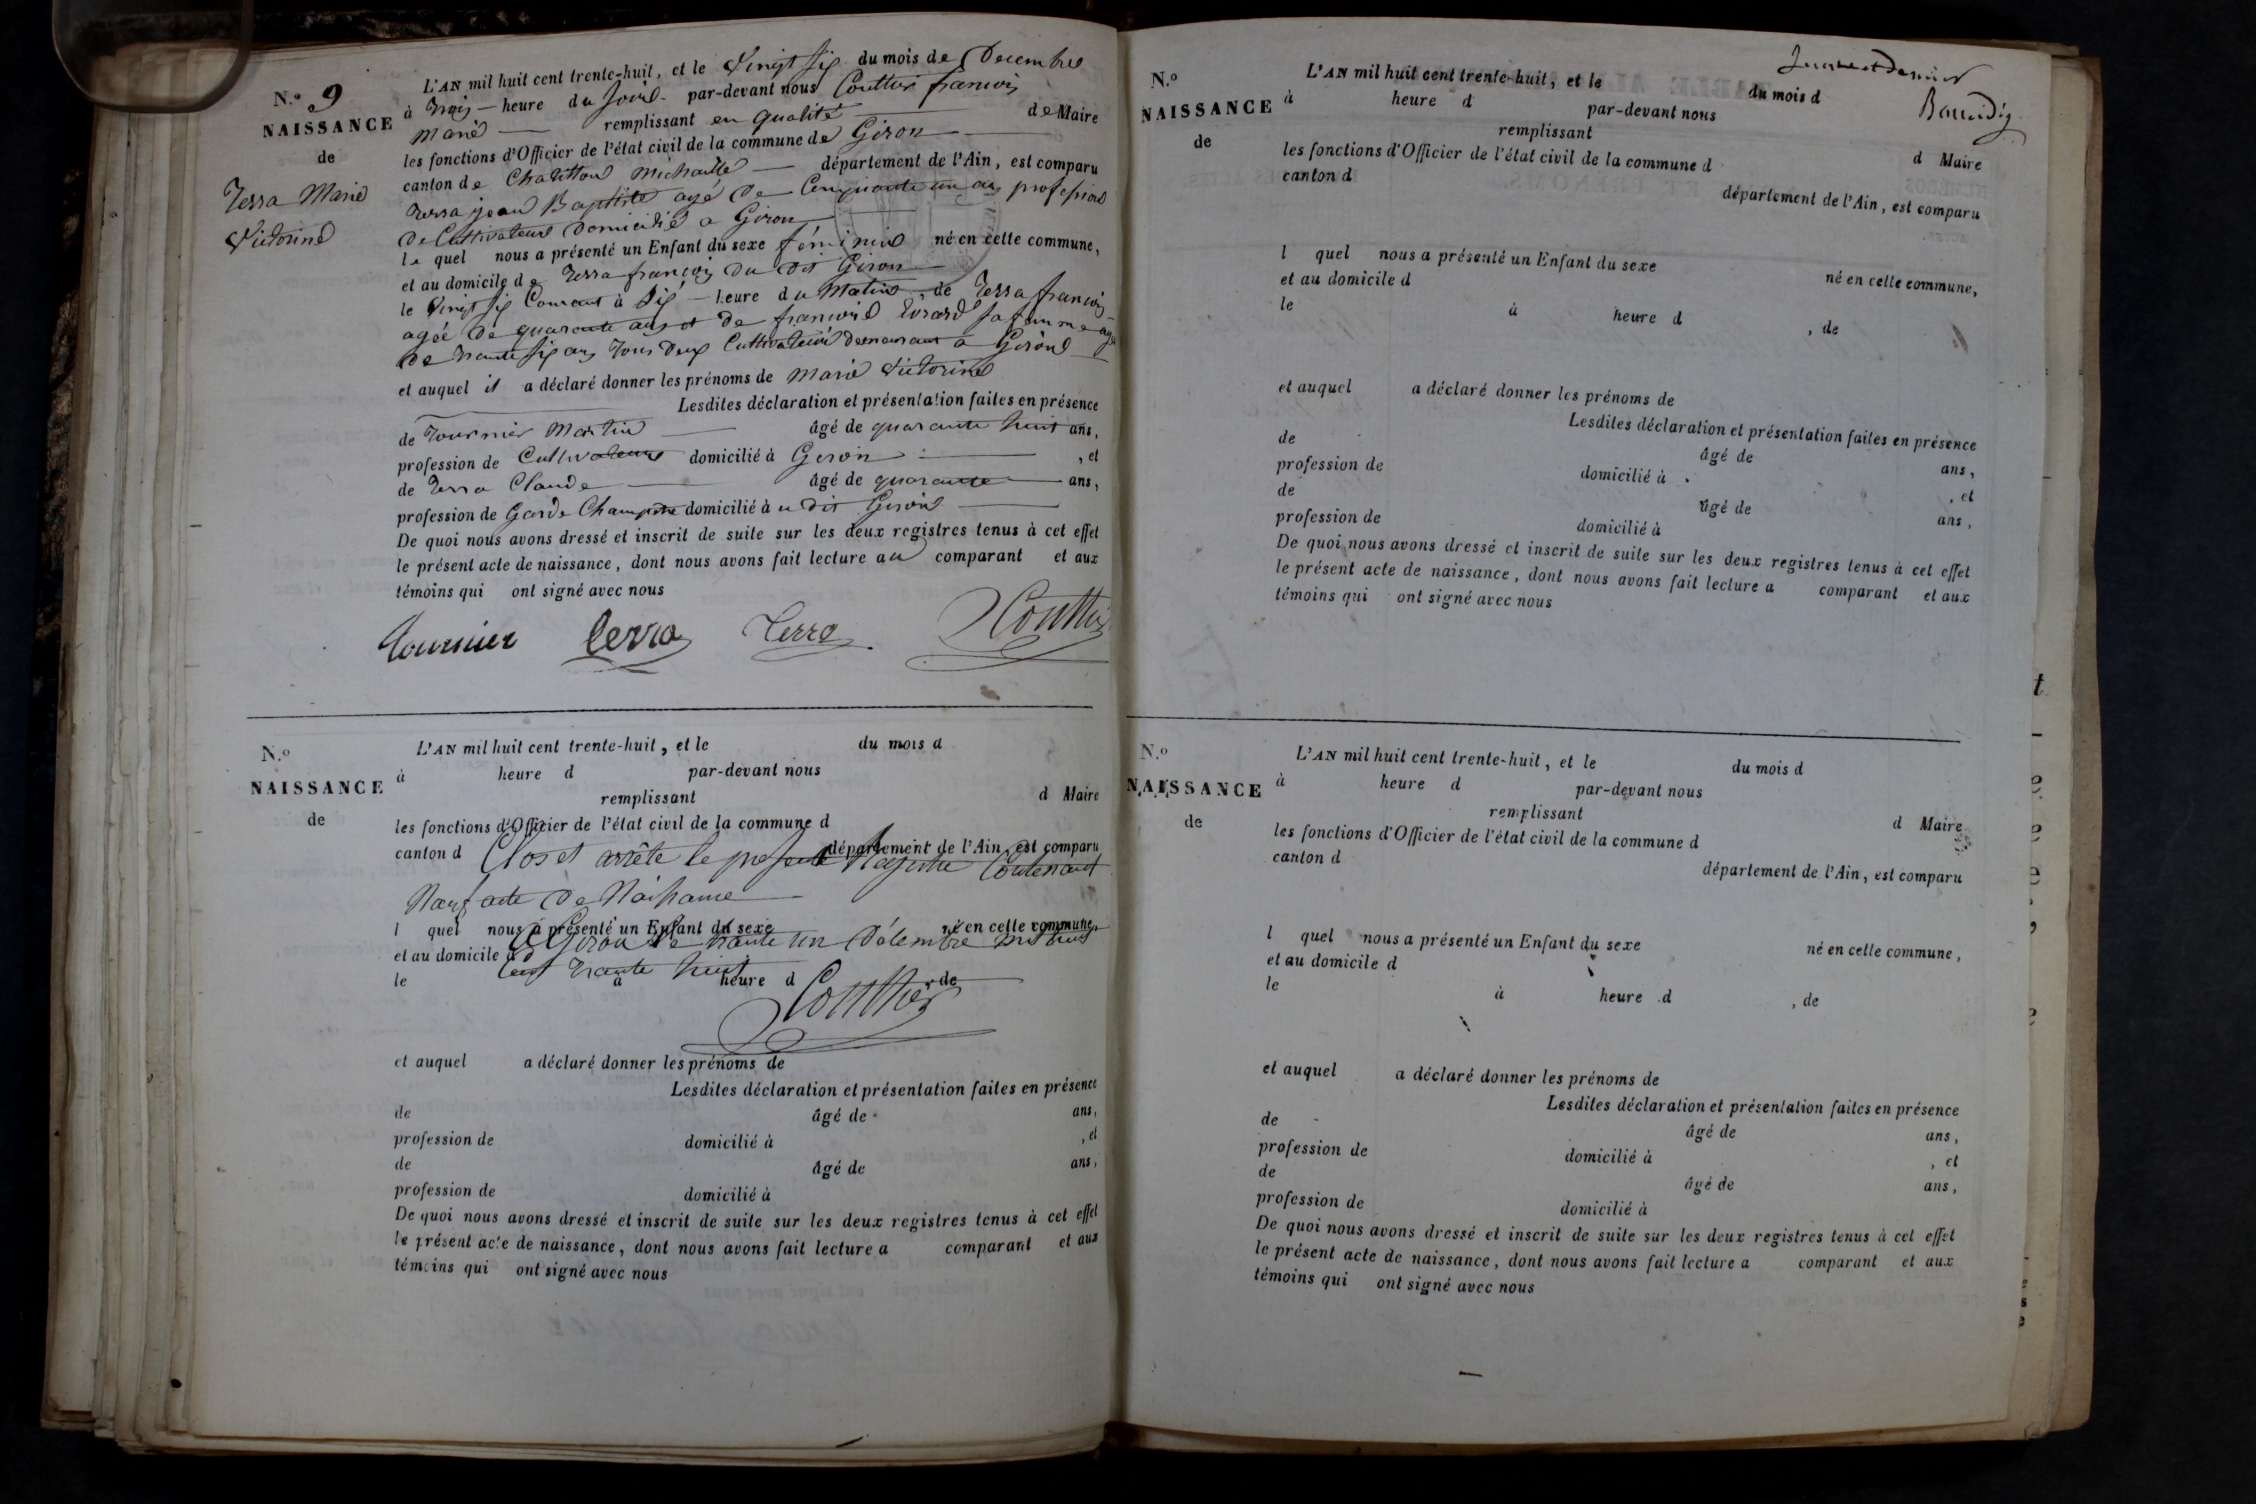 N.o 9
NAISSANCE
de
Terra Marie
Victorine
L'AN mil huit cent trente-huit, et le Vingt six du mois de Decembre
à trois heure du soir par-devant nous Couttier francois
Maire remplissant en qualité de Maire
les fonctions d'Officier de l'état civil de la commune de Giron
canton de Chatillon Michaille département de l'Ain, est comparu
Terra jean Baptiste agé de Cinquante un ans profession
de Cultivateur domicilié a Giron
le quel nous a présenté un Enfant du sexe féminin né en cette commune,
et au domicile de Terra françois du dit Giron
le Vingt six Courant à dix heure du Matin, de Terra francois
agée de quarante ans et de francoise Evrard sa femme agée
de trante six ans tous deux Cultivateurs demeurant a Giron
et auquel il a déclaré donner les prénoms de Marie Victorine
Lesdites déclaration et présentation faites en présence
de Tournier Martin âgé de quarante huit ans,
profession de Cultivateur domicilié à Giron, et
de Terra Claude âgé de quarante ans,
profession de Garde Champetre domicilié à u dit Giron
De quoi nous avons dressé et inscrit de suite sur les deux registres tenus à cet effet
le présent acte de naissance, dont nous avons fait lecture au comparant et aux
témoins qui ont signé avec nous
Tournier Terra Terra Couttier
N.o
NAISSANCE
de
L'AN mil huit cent trente-huit, et le du mois d
à heure d par-devant nous
remplissant d Maire
les fonctions d'Officier de l'état civil de la commune d
canton d département de l'Ain, est comparu
Clos et arrête le present Registre Contenant
Neuf acte de Naissance
l quel nous a présenté un Enfant du sexe né en cette commune,
A Giron le trante un Décembre mil huit
et au domicile d
Cent trante huit
le à heure d , de
Couttier
et auquel a déclaré donner les prénoms de
Lesdites déclaration et présentation faites en présence
de âgé de ans,
profession de domicilié à , et
de âgé de ans,
profession de domicilié à
De quoi nous avons dressé et inscrit de suite sur les deux registres tenus à cet effet
le présent acte de naissance, dont nous avons fait lecture a comparant et aux
témoins qui ont signé avec nous
N.o
NAISSANCE
de
L'AN mil huit cent trente-huit, et le du mois d
à heure d par-devant nous
remplissant d Maire
les fonctions d'Officier de l'état civil de la commune d
canton d département de l'Ain, est comparu
l quel nous a présenté un Enfant du sexe né en cette commune,
et au domicile d
le à heure d , de
et auquel a déclaré donner les prénoms de
Lesdites déclaration et présentation faites en présence
de âgé de ans,
profession de domicilié à , et
de âgé de ans,
profession de domicilié à
De quoi nous avons dressé et inscrit de suite sur les deux registres tenus à cet effet
le présent acte de naissance, dont nous avons fait lecture a comparant et aux
témoins qui ont signé avec nous
N.o
NAISSANCE
de
L'AN mil huit cent trente-huit, et le du mois d
à heure d par-devant nous
remplissant d Maire
les fonctions d'Officier de l'état civil de la commune d
canton d département de l'Ain, est comparu
l quel nous a présenté un Enfant du sexe né en cette commune,
et au domicile d
le à heure d , de
et auquel a déclaré donner les prénoms de
Lesdites déclaration et présentation faites en présence
de âgé de ans,
profession de domicilié à , et
de âgé de ans,
profession de domicilié à
De quoi nous avons dressé et inscrit de suite sur les deux registres tenus à cet effet
le présent acte de naissance, dont nous avons fait lecture a comparant et aux
témoins qui ont signé avec nous